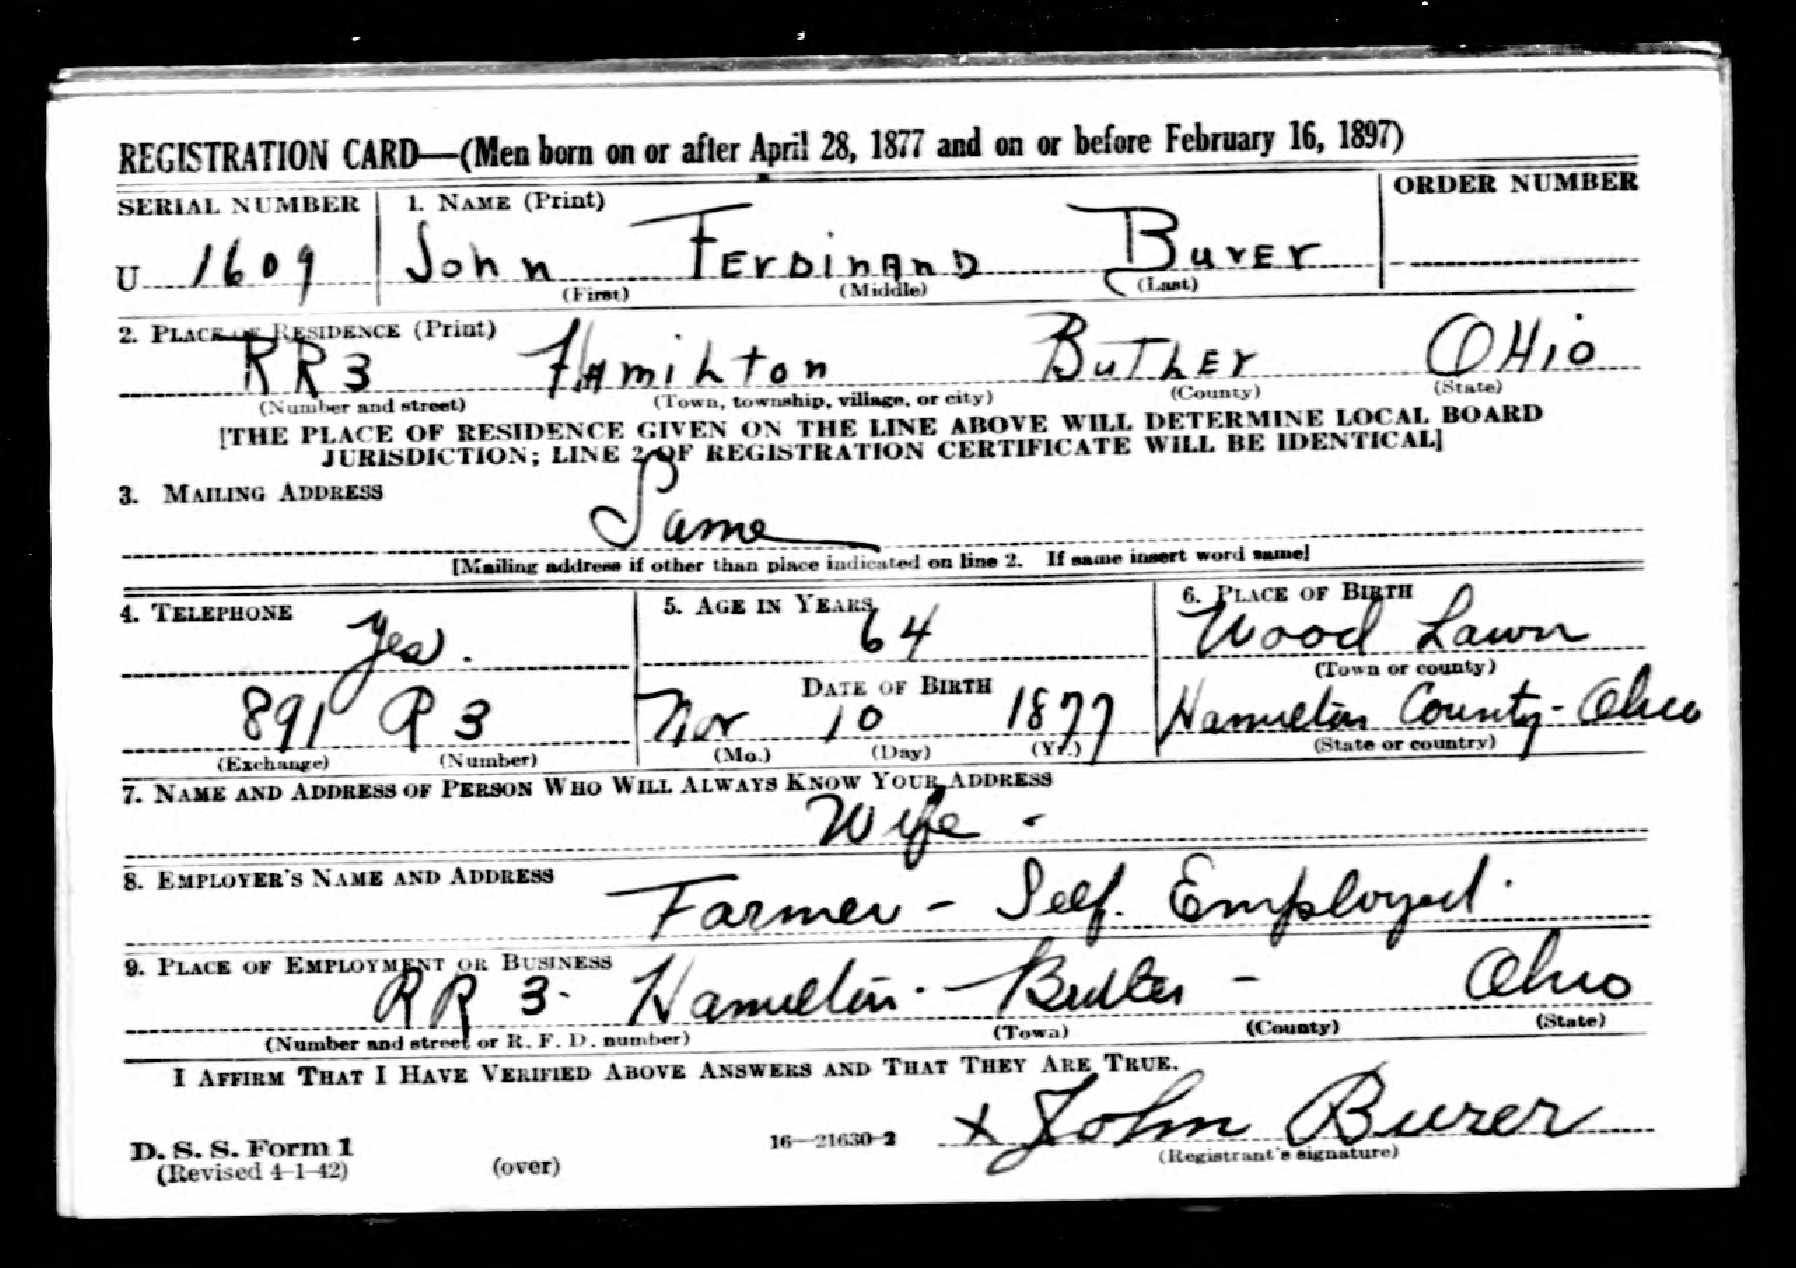 REGISTRATION CARD—(Men born on or after April 28, 1877 and on or before February 16, 1897)
SERIAL NUMBER 1. NAME (Print) ORDER NUMBER
U 1609 John FErDinAnD BurEr
(First) (Middle) (Last)
2. PLACE OF RESIDENCE (Print)
RR3 HAmiLton BuTLEr OHio
(Number and street) (Town, township, village, or city) (County) (State)
[THE PLACE OF RESIDENCE GIVEN ON THE LINE ABOVE WILL DETERMINE LOCAL BOARD
JURISDICTION; LINE 2 OF REGISTRATION CERTIFICATE WILL BE IDENTICAL]
3. MAILING ADDRESS
Same
[Mailing address if other than place indicated on line 2. If same insert word same]
4. TELEPHONE 5. AGE IN YEARS 6. PLACE OF BIRTH
Yes. 64 Wood Lawn
(Town or county)
DATE OF BIRTH
891 R 3 Nov 10 1877 Hamilton County - Ohio
(Exchange) (Number) (Mo.) (Day) (Yr.) (State or country)
7. NAME AND ADDRESS OF PERSON WHO WILL ALWAYS KNOW YOUR ADDRESS
Wife -
8. EMPLOYER'S NAME AND ADDRESS
Farmer - Self. Employed.
9. PLACE OF EMPLOYMENT OR BUSINESS
RR 3. Hamilton. - Butler - Ohio
(Number and street or R. F. D. number) (Town) (County) (State)
I AFFIRM THAT I HAVE VERIFIED ABOVE ANSWERS AND THAT THEY ARE TRUE.
x John Burer
D. S. S. Form 1 16—21630-2 (Registrant's signature)
(Revised 4-1-42) (over)